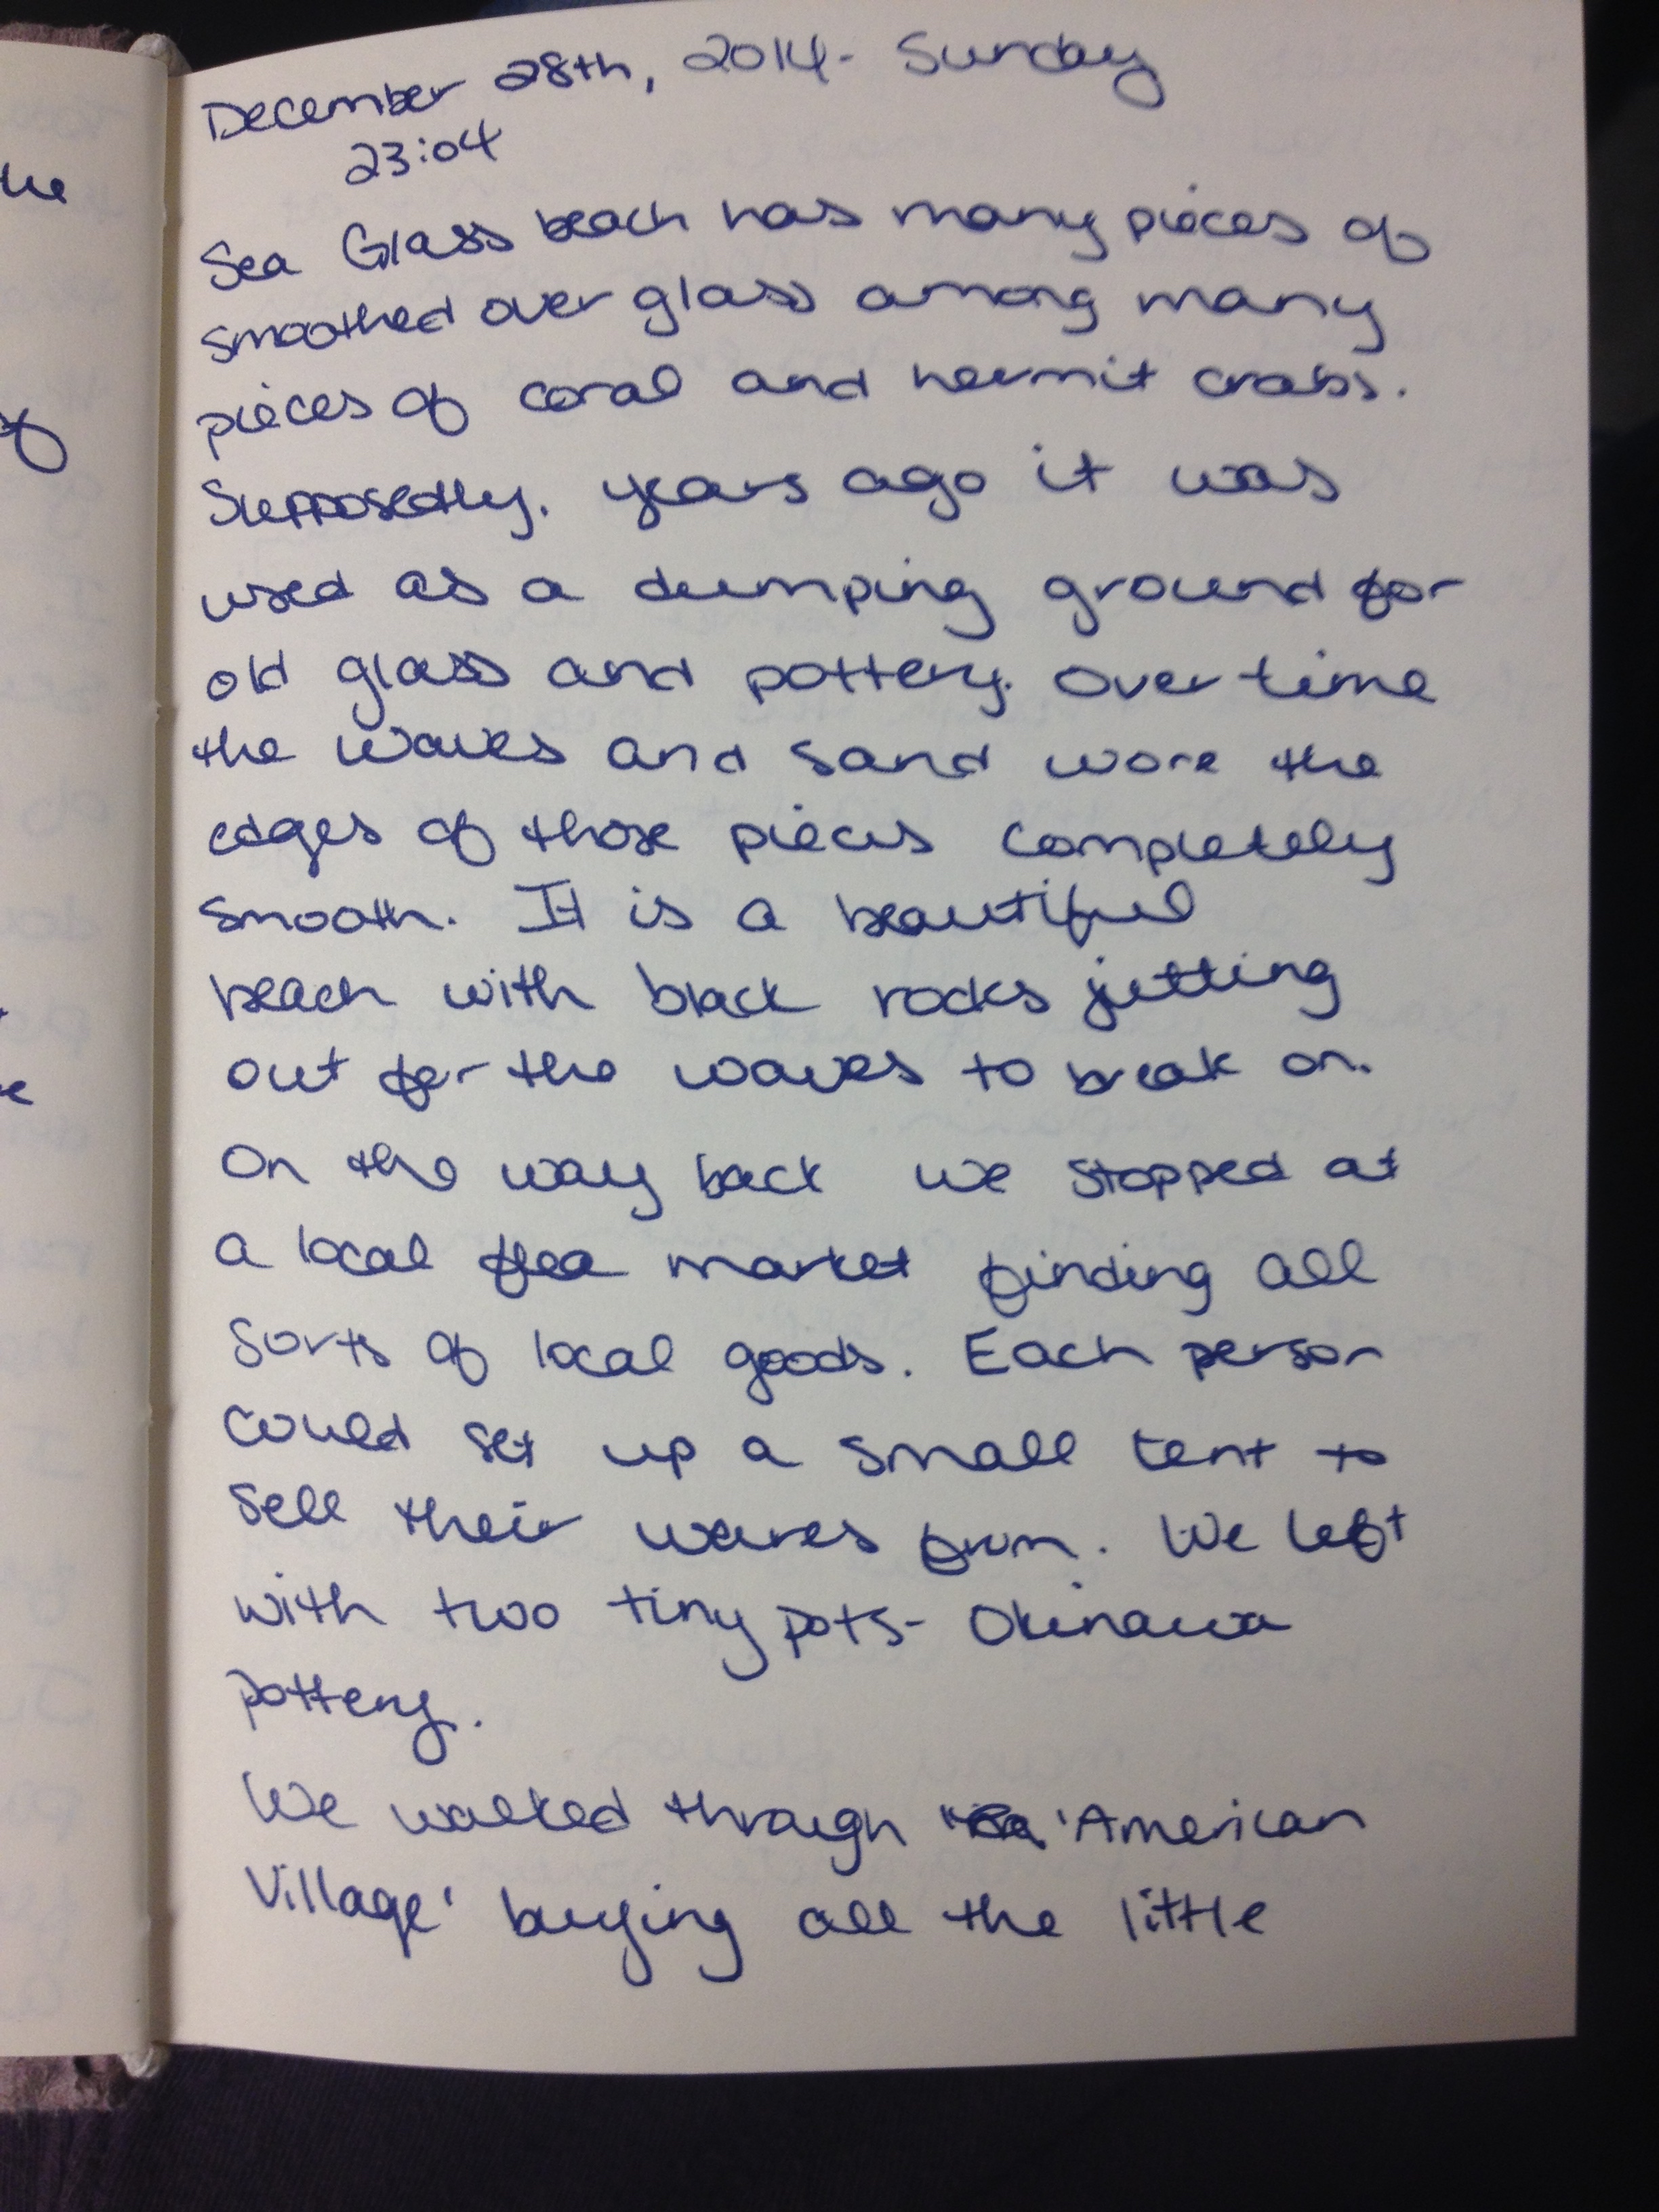 December 28th, 2014 - Sunday
23:04
Sea Glass beach has many pieces of
smoothed over glass among many
pieces of coral and hermit crabs.
Supposedly, years ago it was
used as a dumping ground for
old glass and pottery. Over time
the waves and sand wore the
edges of those pieces completely
smooth. It is a beautiful
beach with black rocks jetting
out for the waves to break on.
On the way back we stopped at
a local flea market finding all
sorts of local goods. Each person
could set up a small tent to
sell their wares from. We left
with two tiny pots - Okinawa
pottery.
We walked through 'American
Village' buying all the little
he
of